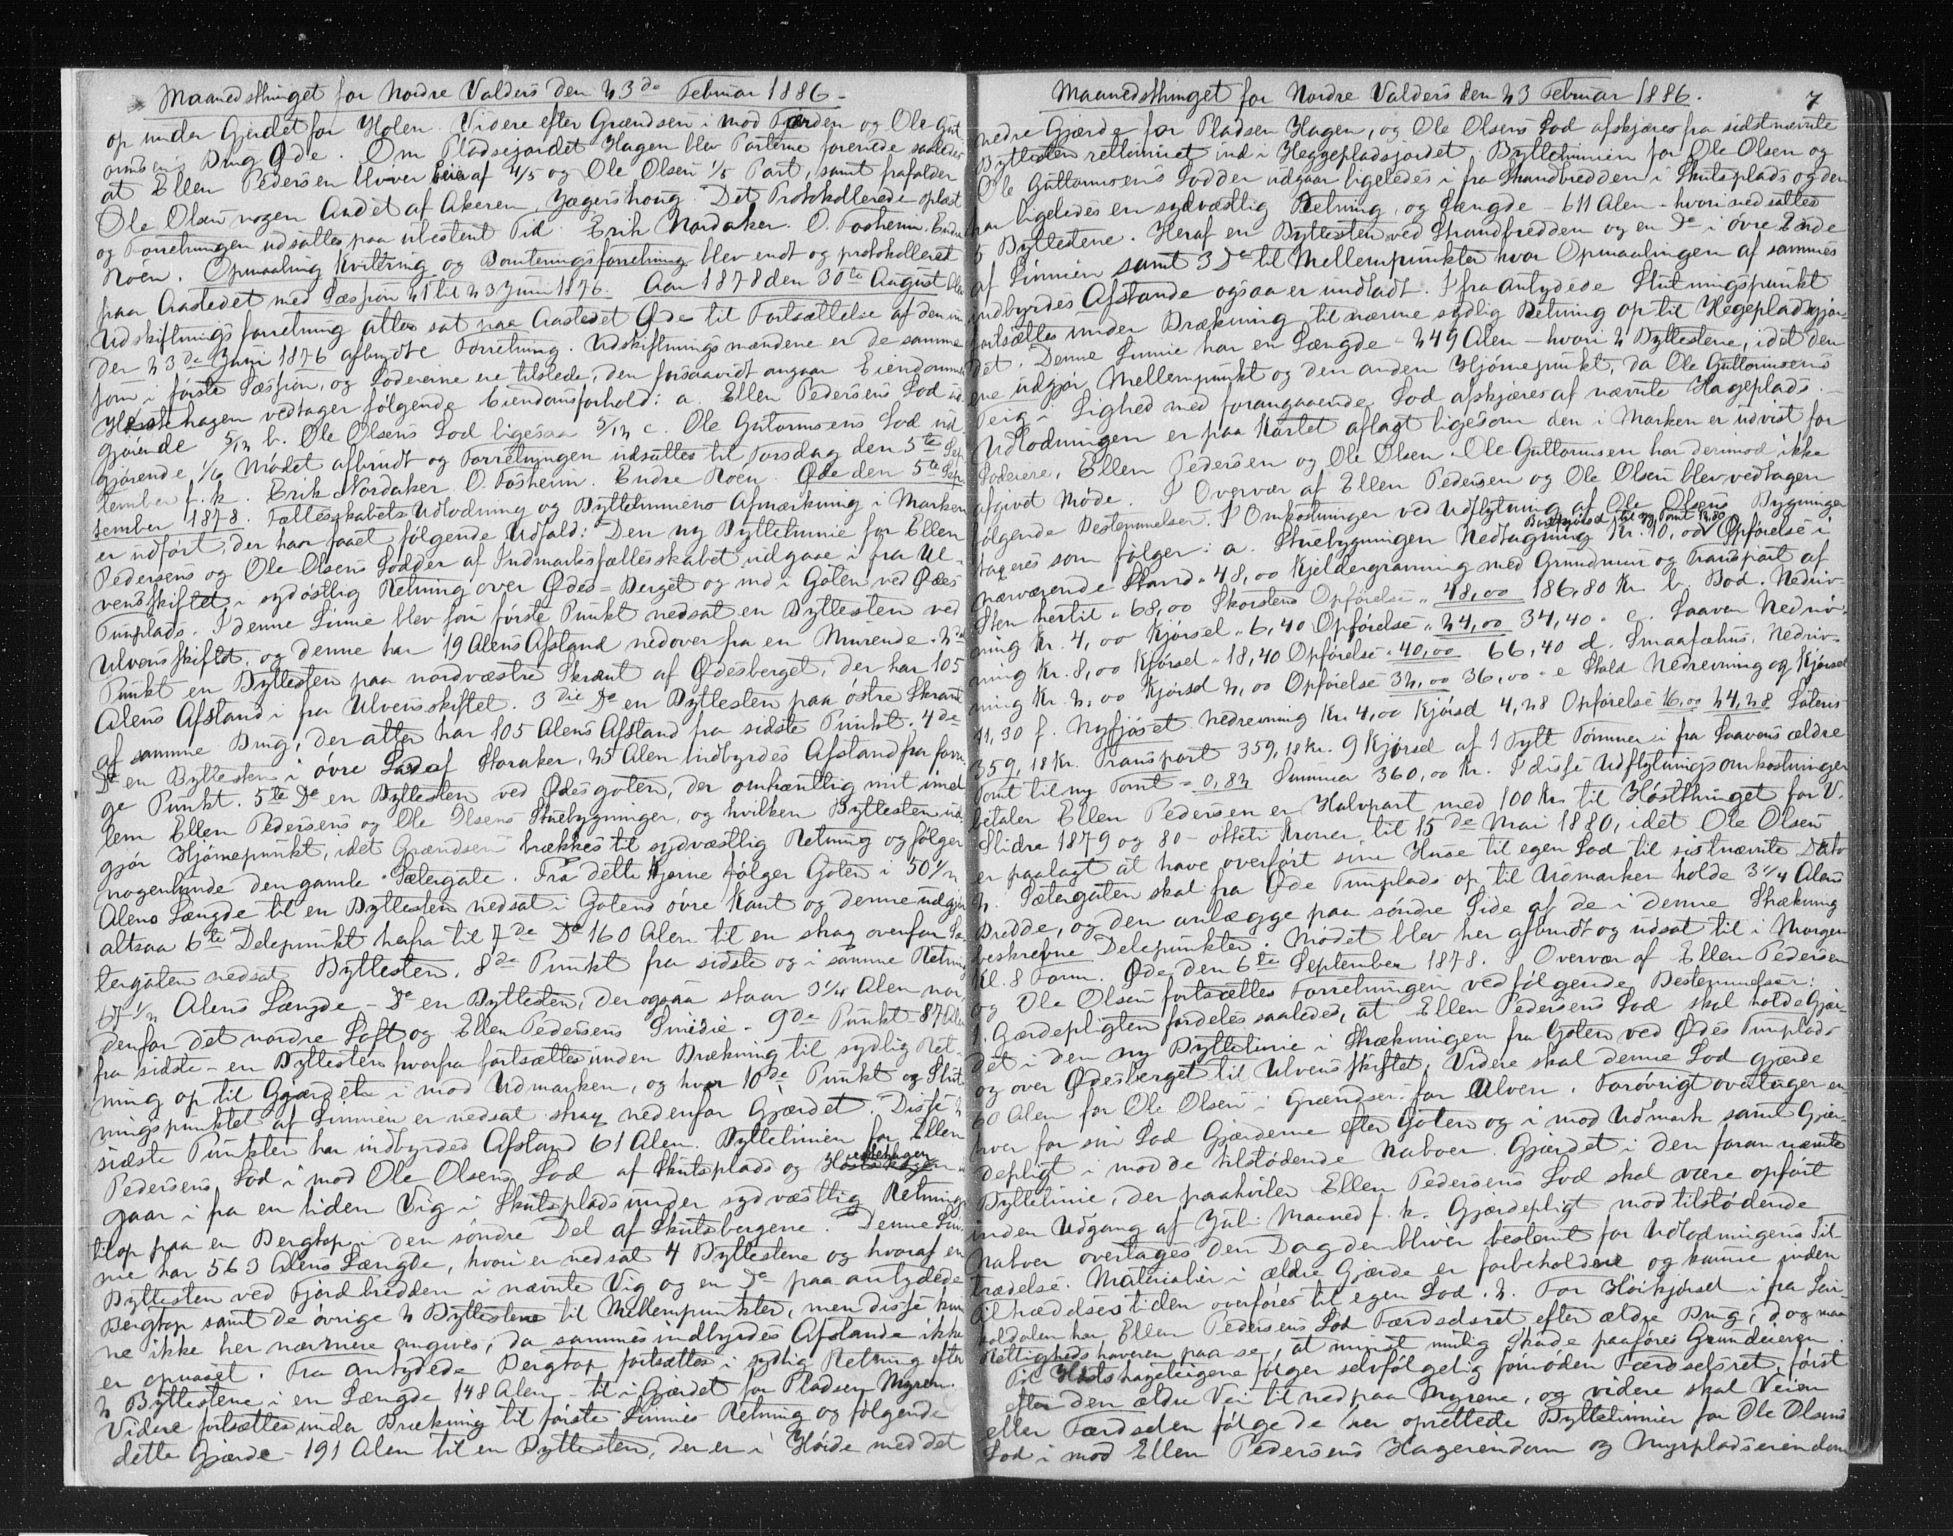 Maanedsthinget for Nordre Valders den 23de Februar 1886.
op under Gjerdet for Holen. Videre efter Grændsen i mod Fjorden og Ole Gut
ormsens Brug Øde. Om Pladsejordet Hagen blev Parterne forenede saaledes
at Ellen Pedersen bliver Eier af 4/5 og Ole Olsen 1/5 Part, samt frafalder
Ole Olsen nogen Andel af Akeren Jægershoug. Det Protokollerede oplæst
og Forretningen udsattes paa ubestemt Tid. Erik Nordaker. O. Fosheim. Endre
Roen. Opmaaling Kvittring og Boniteringsforretning blev endt og protokolleret
paa Aastedet med Sæssion 21 til 23 Juni 1876. Aar 1878 den 30te August blev
Udskiftningsforretning atter sat paa Aastedet Øde til Fortsættelse af den un
der 23de Juni 1876 afbrudte Forretning. Udskiftningsmændene er de samme
som i første Sæssion, og Lodeierne ere tilstede, den forsaavidt angaar Eiendomme
Hestehagen vedtager følgende Eiendomsforhold: a. Ellen Pedersens Lod ud
gjørende 5/12 b. Ole Olsens Lod ligesaa 5/12 c. Ole Gutormsens Lod ud
gjørende 1/6 Mødet afbrudt og Forretningen udsattes til Torsdag den 5te Sep
tember f. k. Erik Nordaker O. Fosheim. Endre Roen. Øde den 5te Sep
tember 1878. Fællesskabets Udlodning og Byttelinniens Afmærkning i Marken
er udført, der har faaet følgende Udfald: Den ny Byttelinnie for Ellen
Pedersens og Ole Olsens Lodder af Indmarksfællesskabet udgaar i fra Ul-
vensskiftet i sydøstlig Retning over Ødes-Berget og ind i Goten ved Ødes
Tunplads. I denne Linnie blev som første Punkt nedsat en Byttesten ved
Ulvensskiftet, og denne har 19 Alens Afstand nedover fra en Murende. 2det
Punkt en Byttesten paa nordvæstre Skrænt af Ødesberget, der har 105
Alens Afstand i fra Ulvensskiftet. 3die Do en Byttesten paa østre Skrænt
af samme Brug, der atter har 105 Alens Afstand fra sidste Punkt. 4de
Do en Byttesten i øvre Ende af Storaker, 25 Alen indbyrdes Afstand fra forri
ge Punkt. 5te Do en Byttesten ved Ødesgoten, der omhæntlig mit imel
lem Ellen Pedersens og Ole Olsens Stuebygninger, og hvilken Byttesten ud
gjør Hjørnepunkt, idet Grændsen brækkes til sydvæstlig Retning og følger
nogenlunde den gamle Sætergate. Fra dette Hjørne følger Goten i 50 1/2
Alens Længde til en Byttesten nedsat i Gotens øvre Kant og denne udgjør
altsaa 6te Delepunkt herfra til 7de Do 160 Alen til en strag ovenfor Sæ
tergaten nedsat Byttesten. 8de Punkt fra sidste og i samme Retning
67 1/2 Alens Længde - Do en Byttesten, der ogsaa staar 3 1/4 Alen nor-
denfor det nordre Loft og Ellen Pedersens Smidie. 9de Punkt 87 Alen
fra sidste - en Byttesten hvorfra fortsættes under Brækning til sydlig Ret-
ning op til Gjærdet i mod Udmarken, og hvor 10de Punkt og Slut-
ningspunktet af Linnien er nedsat strag nedenfor Gjærdet. Disse 2
sidste Punkter har indbyrdes Afstand 61 Alen. Byttelinien for Ellen
Pedersens Lod i mod Ole Olsens Lod af Skutsplads og
gaar i fra en liden Vig i Skutsplads under sydvæstlig Retning
til op paa en Bergtop i den søndre Del af Skutsbergene. Denne Lin-
nie har 563 Alens Længde, hvori er nedsat 4 Byttestene og hvoraf en
Byttesten ved Fjordbredden i nævnte Vig og en Do paa antydede
Bergtop samt de øvrige 2 Byttestene til Mellempunkter, men disse kun
ne ikke her nærmere angives, da sammes indbyrdes Afstande ikke
er opmaalt. Fra antydede Bergtop fortsættes i sydlig Retning efter
2 Byttestene i en Længde 148 Alen - til i Gjærdet for Pladsen Myren.
Videre fortsættes under Brækning til første Linnies Retning og følgende
dette Gjærde - 191 Alen til en Byttesten, der er i Høide med det
Maanedsthinget for Nordre Valders den 23 Februar 1886. 7
nedre Gjærde for Pladsen Hagen, og Ole Olsens Lod afskjæres fra sidstnævnte
Byttesten retlinniet ind i Heggepladsjordet. Byttelinnien for Ole Olsen og
Ole Guttormsens Lodder udgaar ligeledes i fra Strandbredden i Skutsplads og den
har ligeledes en sydvæstlig Retning, og Længde - 611 Alen - hvori nedsattes
5 Byttestene. Heraf en Byttesten ved Strandbredden og en Do i øvre Ende
af Linnien samt 3 Do til Mellempunkter hvor Opmaalingen af sammes
indbyrdes Afstande ogsaa er undladt. I fra antydede Slutningspunkt
fortsættes under Brækning til nærme sydlig Retning op til Hegepladsgjær
det. Denne Linnie har en Længde - 249 Alen - hvori 2 Byttestene, idet den
ene udgjør Mellempunkt og den anden Hjørnepunkt, da Ole Guttormsens
Teig i Lighed med foranangaaende Lod afskjæres af nævnte Hageplads.
Udlodningen er paa Kartet aflagt ligesom den i Marken er udvist for
Lodeiere, Ellen Pedersen og Ole Olsen. Ole Guttormsen har derimod ikke
afgivet Møde. I Overvær af Ellen Pedersen og Ole Olsen blev vedtagen
følgende Bestemmelser. 1 Omkostninger ved Udflytning af Ole Olsens Bygninger
tageres som følger: a. Stuebygningen Nedtagning Kr. 10,00 Bortkjørsel til ny Tomt 12,80 Opførelse i
nærværende Stand " 48,00 Kjeldergravning med Grundmur og Transport af
Sten hertil " 68,00 Skorstens Opførelse " 48,00 186,80 Kr b. Bod. Nedriv-
ning Kr. 4,00 Kjørsel " 6,40 Opførelse " 24,00 34,40. c. Laaven Nedriv-
ning Kr. 8,00 Kjørsel " 18,40 Opførelse " 40,00 66,40 d. Smaafæhus. Nedriv-
ning Kr. 2,00 Kjørsel 2,00 Opførelse 32,00 36,00 - e Stald Nedrevning og Kjørsel
11,30 f. Nyfjøset Nedrevning Kr. 4,00 Kjørsel 4,28 Opførelse 16,00 24,28 Lateris
359,18 Kr. Transport 359,18 Kr. 9 Kjørsel af 1 Tylt Tømmer i fra Laavens ældre
Tomt til ny Tomt - 0,82 Summa 360,00 Kr. I disse Udflytningsomkostninger
betaler Ellen Pedersen en Halvpart med 100 Kr. til Høstthinget for V.
Slidre 1879 og 80 - otteti Kroner til 15de Mai 1880, idet Ole Olsen
er paalagt at have overført sine Huse til egen Lod til sistnævnte Dato
2. Sætergaten skal fra Øde Tunplads op til Udmarken holde 3 1/4 Alens
Bredde, og den anlægges paa søndre Side af de i denne Strækning
beskrevne Delepunkter. Mødet blev her afbrudt og udsat til i Morgen
Kl. 8 Form. Øde den 6te September 1878. I Overvær af Ellen Pedersen
og Ole Olsen fortsættes Forretningen ved følgende Bestemmelser:
1. Gærdepligten fordeles saaledes, at Ellen Pedersens Lod skal holde Gjær-
det i den ny Byttelinie i Strækningen fra Goten ved Ødes Tunplads
og over Ødesberget til Ulvensskiftet. Videre skal denne Lod gjærde
60 Alen for Ole Olsen i Grændser for Ulven. Forøvrigt overtager en
hver for sin Lod Gjærderne efter Goten og i mod Udmark samt Gjær-
depligt i mod de tilstødende Naboer. Gjærdet i den foran nævnte
Byttelinie, der paahviler Ellen Pedersens Lod skal være opført
inden Udgang af Juli Maaned f. k. Gjærdepligt mod tilstødende
Naboer overtages den Dag der bliver bestemt for Udlodningens Til
trædelse. Materialier i ældre Gjærde er forbeholdene og kunne inden
Tiltrædelsestiden overføres til egen Lod. 2. For Høikjørsel i fra Lei-
roldalen har Ellen Pedersens Lod Færdselsret efter ældre Brug, dog maa
Rettighedshaveren paa se, at minst mulig Skade paaføres Grundeieren.
Til Høstehageteigene følger selvfølgelig fornøden Færdselsret, først
efter den ældre Vei til ned paa Myrene, og videre skal Veien
eller Færdselen følge de her oprettede Byttelinnier for Ole Olsens
Lod i mod Ellen Pedersens Hageeiendom og Myrpladseiendom